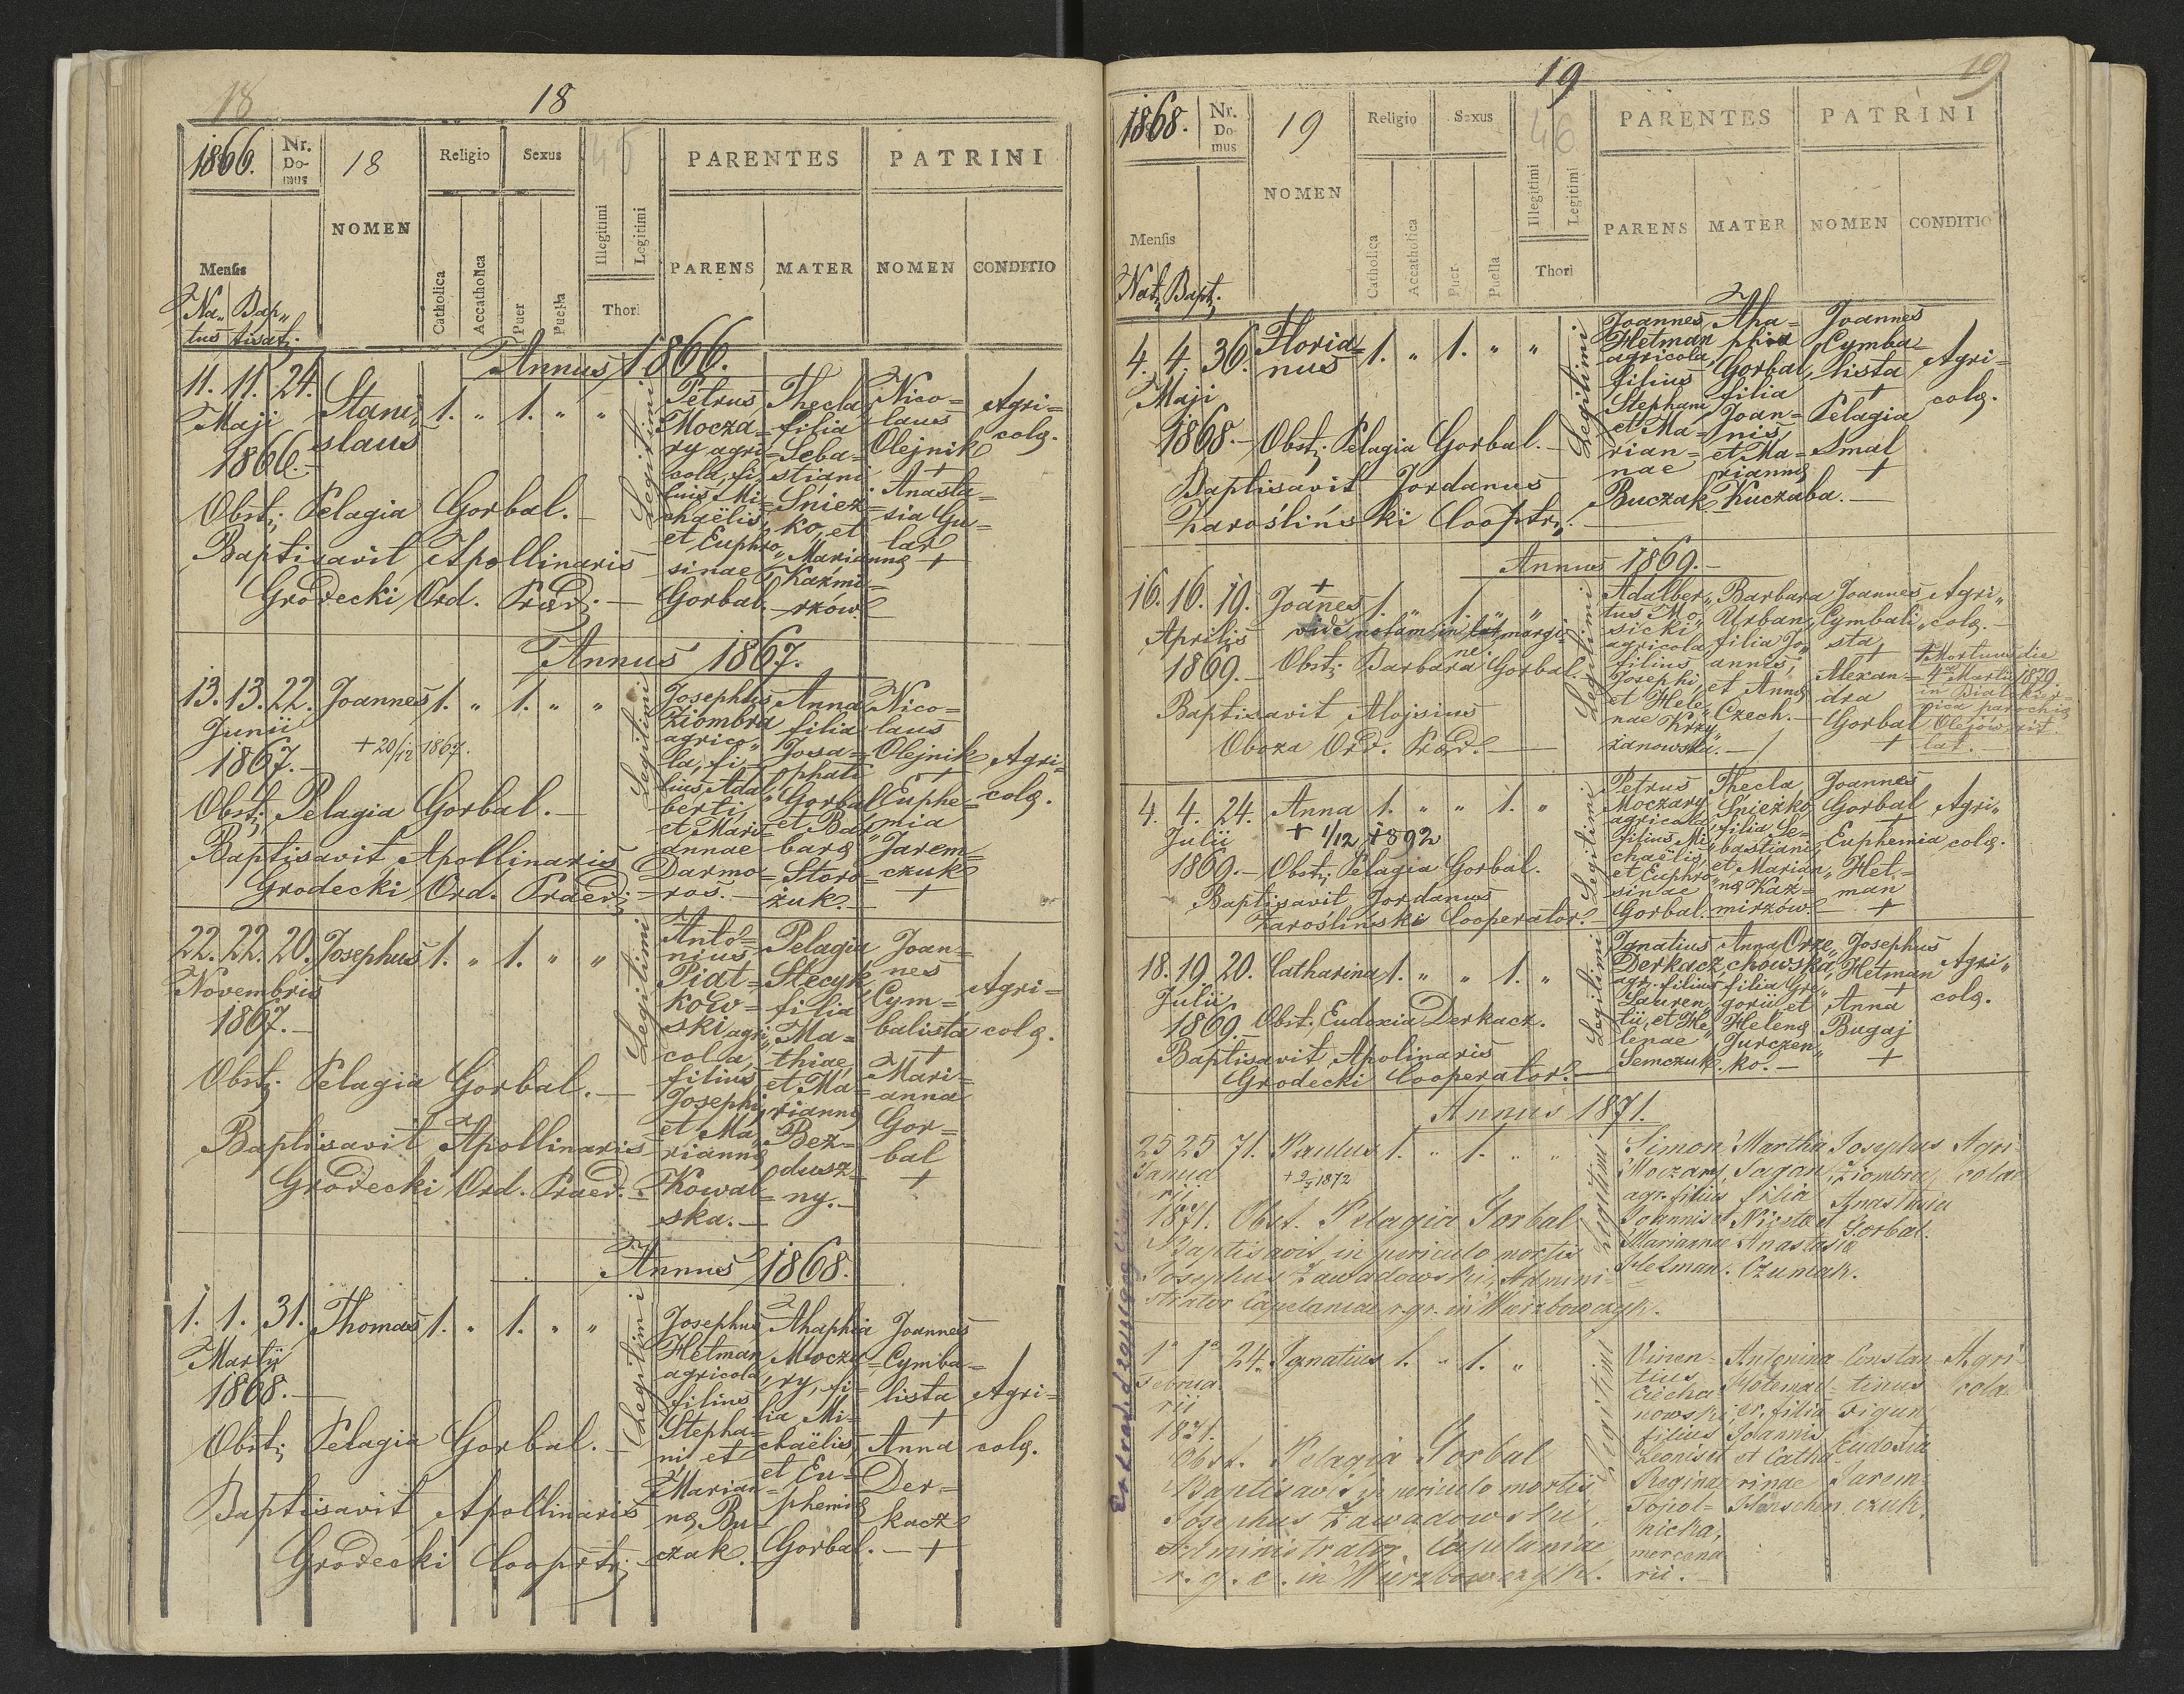 18
18
1866.
Nr. Do-mus
18
Religio
Sexus
45
PARENTES
PATRINI
NOMEN
Mensis
Catholica
Accatholica
Puer
Puella
Illegitimi
Legitimi
Thori
PARENS
MATER
NOMEN
CONDITIO
Na„ Bap„
tus tisat;
Annus 1866.
11. 11. 24.
Maji
1866.-
Stani„
slaus
1. „ 1. „ „
Legitimi
Petrus
Mocza=
ry agri=
cola, fi„
lius Mi=
chaëlis,
et Euphro„
sinae
Gorbal.
Thecla
filia
Seba=
stiani
Snież=
ko, et
Marianna
Kaźmi=
rzów.
Nico=
laus
Olejnik
+
Anasta=
sia Gu=
lar
+
Agri=
cola.
Obst; Pelagia Gorbal.-
Baptisavit Apollinaris
Grodecki Ord. Praed;
Annus 1867.
13. 13. 22.
Junii
1867.-
Joannes
+ 20/12 1867.
1. „ 1. „ „
Legitimi
Josephus
Ziombra
agrico„
la, fi„
lius Adal„
berti,
et Mari=
annae
Darmo=
ros.-
Anna
filia
Josa=
phati
Gorbal
et Bar„
bara
Storo=
żuk.-
Nico=
laus
Olejnik
+
Euphe=
mia
Jarem=
czuk
+
Agri=
cola.
Obst; Pelagia Gorbal.-
Baptisavit Apollinaris
Grodecki Ord. Praed;
22. 22. 20.
Novembris
1867.-
Josephus
1. „ 1. „ „
Legitimi
Anto=
nius
Piąt=
kow=
ski agri„
cola,
filius
Josephi,
et Ma„
rianna
Kowal=
ska.-
Pelagia
Stecyk
filia
Ma=
thiae,
et Ma=
rianna
Bez=
dusz=
ny.-
Joan=
nes
Cym=
balista
+
Mari=
anna
Gor=
bal
+
Agri=
cola.
Obst; Pelagia Gorbal.-
Baptisavit Apollinaris
Grodecki Ord. Praed.
Annus 1868.
1. 1. 31.
Martii
1868.-
Thomas
1. „ 1. „ „
Legitimi
Josephus
Hetman
agricola,
filius
Stepha=
ni et
Marian=
na Bu=
czak.
Ahaphia
Mocza=
ry, fi=
lia Mi=
chaëlis,
et Eu=
phemia
Gorbal.-
Joannes
Cymba=
lista
+
Anna
Der=
kacz
+
Agri=
cola.
Obst; Pelagia Gorbal.-
Baptisavit Apollinaris
Grodecki Cooptr;
19
19
1868.
Nr. Do-mus
19
Religio
Sexus
46
PARENTES
PATRINI
NOMEN
Mensis
Catholica
Accatholica
Puer
Puella
Illegitimi
Legitimi
Thori
PARENS
MATER
NOMEN
CONDITIO
Nat; Bapt;
4. 4. 36.
Maji
1868.-
Floria=
nus
1. „ 1. „ „
Legitimi
Joannes
Hetman
agricola,
filius
Stephani
et Ma=
rian=
nae
Buczak.
Aha=
phia
Gorbal,
filia
Joan=
nis,
et Ma=
rianna
Kuczaba.-
Joannes
Cymba=
lista
+
Pelagia
Smal
+
Agri=
cola.
Obst; Pelagia Gorbal.-
Baptisavit Jordanus
Zarośliński Cooptr;
Annus 1869.-
16. 16. 19.
Aprilis
1869.-
+
Joañes
vide notam in lat margi=
ne
1. „ 1. „ „
Legitimi
Adalber„
tus Mo„
sicki
agricola
filius
Josephi,
et Hele„
nae Krzy„
żanowska.-
Barbara
Urban,
filia Jo„
annes,
et Anna
Czech.-
Joannes
Cymbali„
sta
+
Alexan=
dra
Gorbal
+
Agri„
cola.-
+ Mortuus die
4ta Martii 1879.
parochia
Olejów
Obst; Barbara Gorbal.
Baptisavit Alojsius
Oboza Ord. Praed.
4. 4. 24.
Julii
1869.-
Anna
+ 1/12 1892
1. „ „ 1. „
Legitimi
Petrus
Moczary
agricola,
filius Mi„
chaëlis,
et Euphro„
sinae
Gorbal.
Thecla
Śnieżko
filia Se=
bastiani,
et Marian„
na Kaź=
mirzów.-
Joannes
Gorbal
+
Euphemia
Het=
man
+
Agri„
cola.
Obst; Pelagia Gorbal.
Baptisavit Jordanus
Zarośliński Cooperator.
18. 19. 20.
Julii
1869.-
Catharina
1. „ „ 1. „
Legitimi
Ignatius
Derkacz,
agr. filius
Lauren„
tii, et He„
lenae
Semczuk.
Anna Orze„
chowska,
filia Gre„
gorii et
Helena
Jurczen„
ko.-
Josephus
Hetman
+
Anna
Bugaj
+
Agri„
cola.
Obst; Eudoxia Derkacz.
Baptisavit Apolinaris
Grodecki Cooperator.-
Annus 1871.
25 25 71.
Janua
rii
1871.
Paulus
1. „ 1. „ „
Legitimi
Simon
Moczary,
agr. filius
Joannis et
Mariannae
Hetman.
Martha
Sagan,
filia
Anastasia
Czumak.
Josephus
Ziombra,
Anastasia
Gorbal.
Agri
colae
Obst. Pelagia Gorbal
Baptisavit in periculo mortis
Josephus Zawadowski, Admini=
strator Capelaniae r. gr. in Wierzbowczyk.
1a 1a 24.
Februa
rii
1871.
Ignatius
1. „ 1. „
Legitimi
Vincen=
tius
Ciecha
nowski,
filius
Leonis et
Reginae
Topol=
nicka,
mercena
rii.-
Antonina
filia
Joannis
et Catha
rinae
Constan
tinus
Figun
Eudoxia
Jarem=
czuk.
Agri
cola
Obst. Pelagia Gorbal
Baptisavit in periculo mortis
Josephus Zawadowski,
Administrator Capelaniae
r. g. c. in Wierzbowczyk.